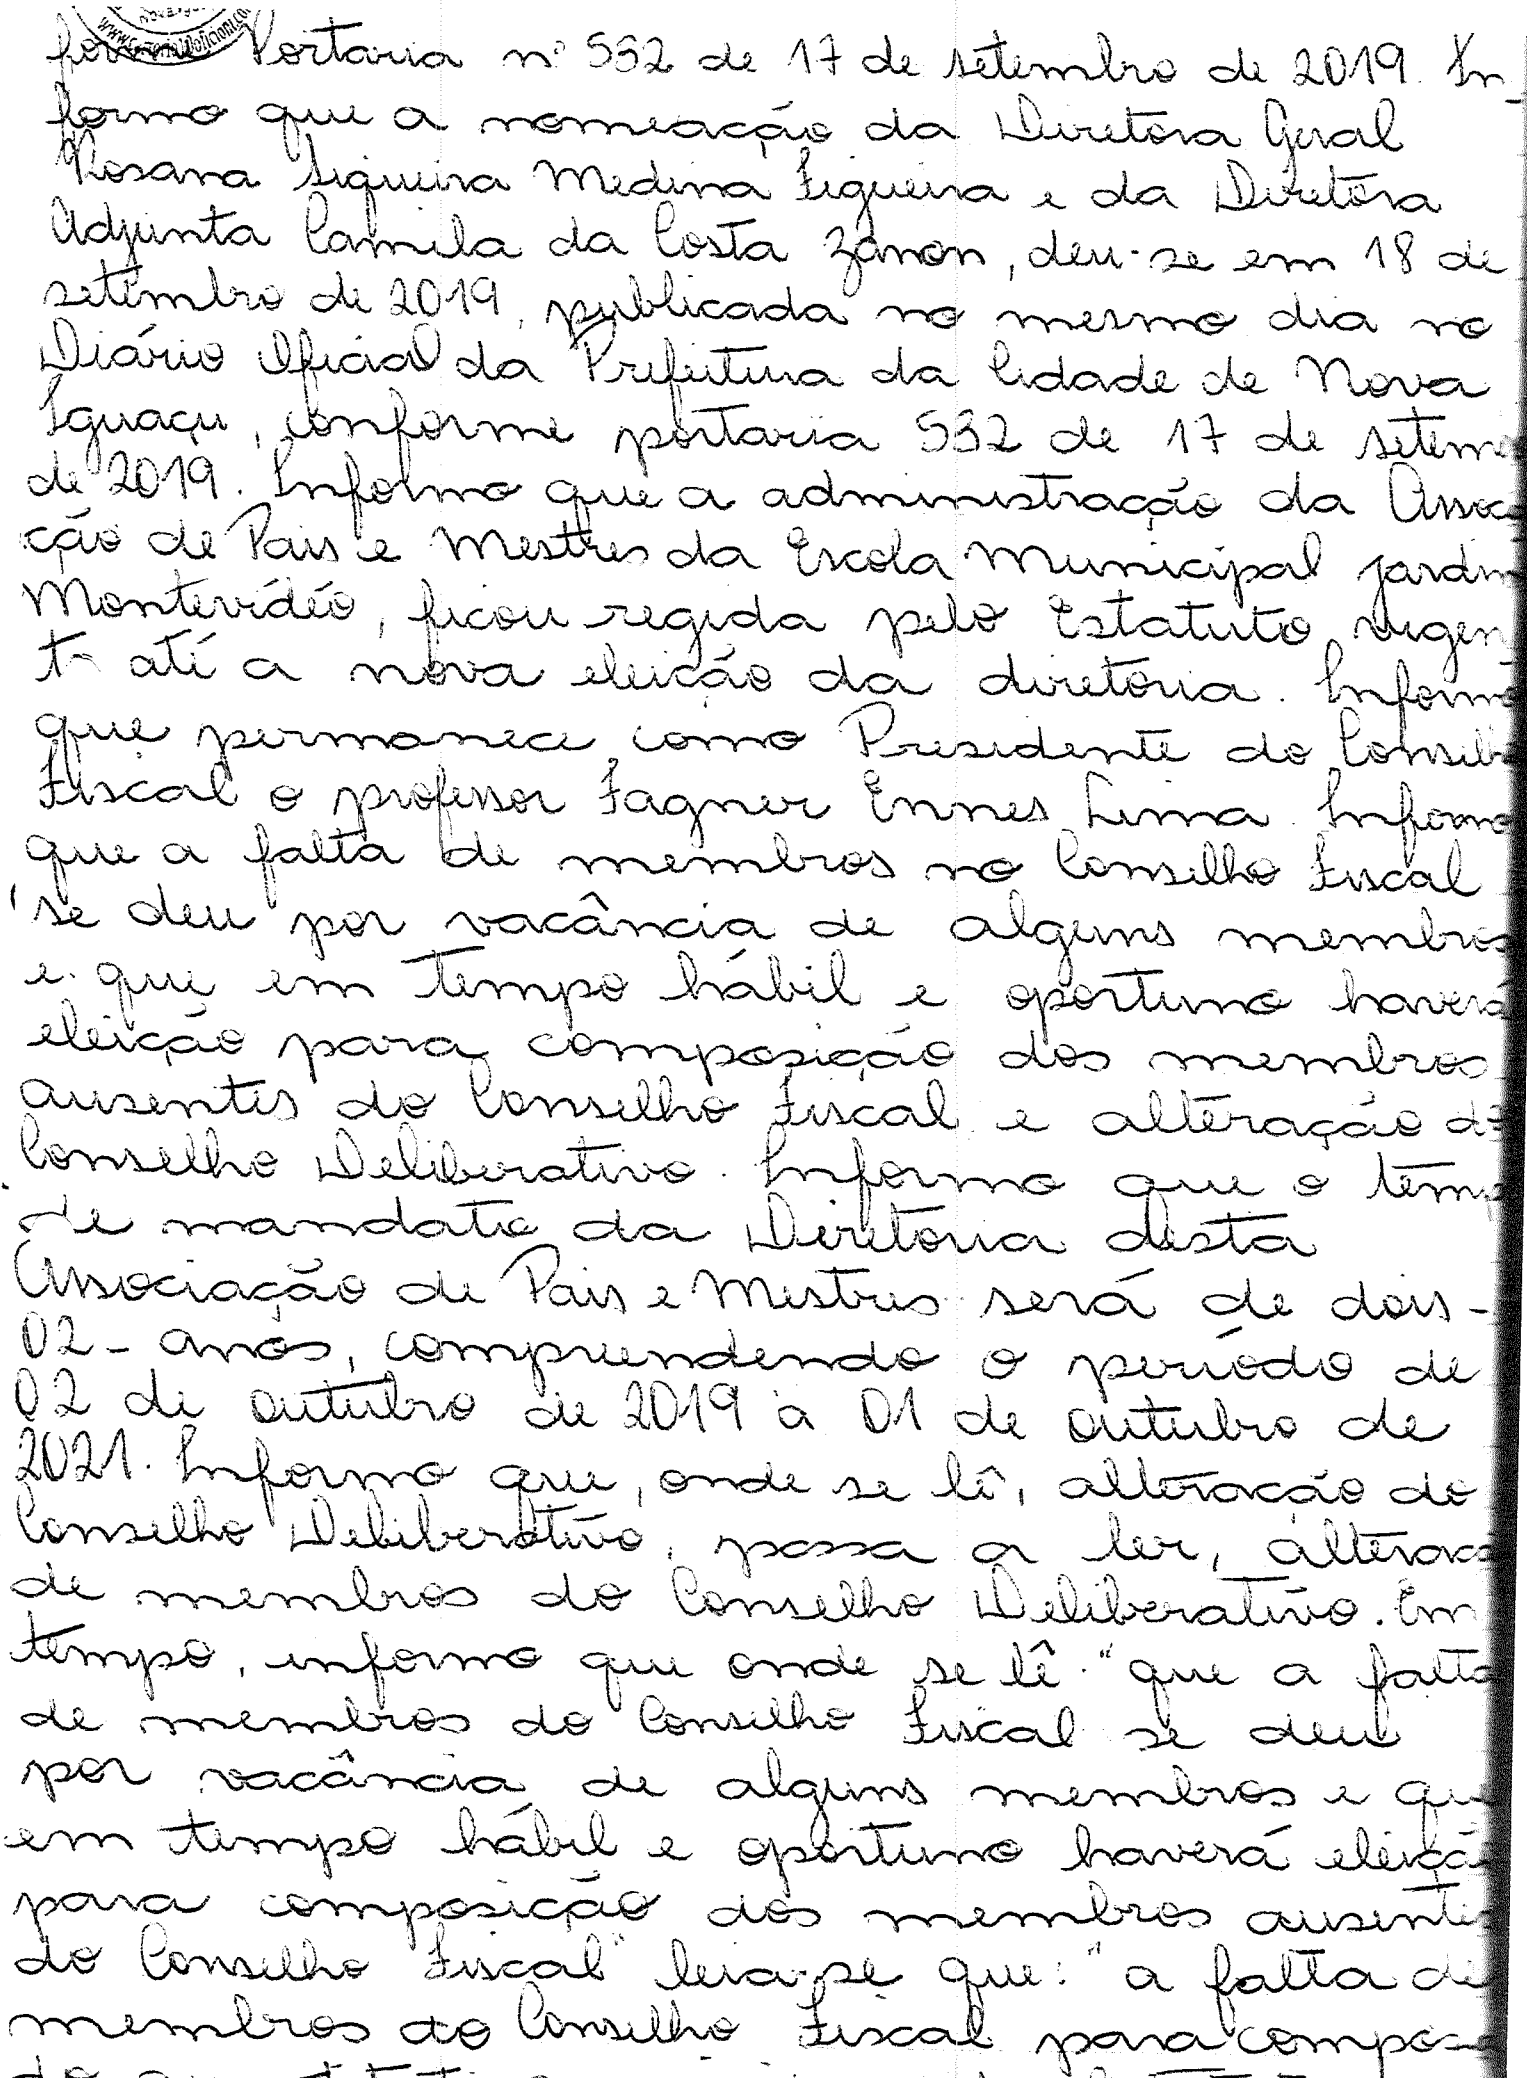 forme Portaria nº 532 de 17 de setembro de 2019. In_
formo que a nomeação da Diretora Geral
Rosana Siqueira Medina Figueira e da Diretora
Adjunta Camila da Costa Zanon, deu-se em 18 de
setembro de 2019, publicada no mesmo dia no
Diário Oficial da Prefeitura da Cidade de Nova
Iguaçu, conforme portaria 532 de 17 de setem
de 2019. Informo que a administração da Assoc
ção de Pais e Mestres da Escola Municipal Jardim
Montevidéo, ficou regida pelo Estatuto vigen_
te até a nova eleição da diretoria. Informo
que permanece como Presidente do Conselh
Fiscal o professor Fagner Ennes Lima. Informo
que a falta de membros no Conselho Fiscal
se deu por vacância de alguns membros
e que em tempo hábil e oportuno haverá
eleição para composição dos membros
ausentes do Conselho Fiscal e alteração do
Conselho Deliberativo. Informo que o temp
de mandato da Diretoria desta
Associação de Pais e Mestres será de dois -
02 - anos, compreendendo o período de
02 de outubro de 2019 à 01 de outubro de
2021. Informo que, onde se lê, alteração do
Conselho Deliberativo, passa a ler, alteraç
de membros do Conselho Deliberativo. Em
tempo, informo que onde se lê "que a falta
de membros do Conselho Fiscal se deu
por vacância de alguns membros e que
em tempo hábil e oportuno haverá eleiçã
para composição dos membros ausentes
do Conselho Fiscal" leia-se que: "a falta de
membros do Conselho Fiscal para compos